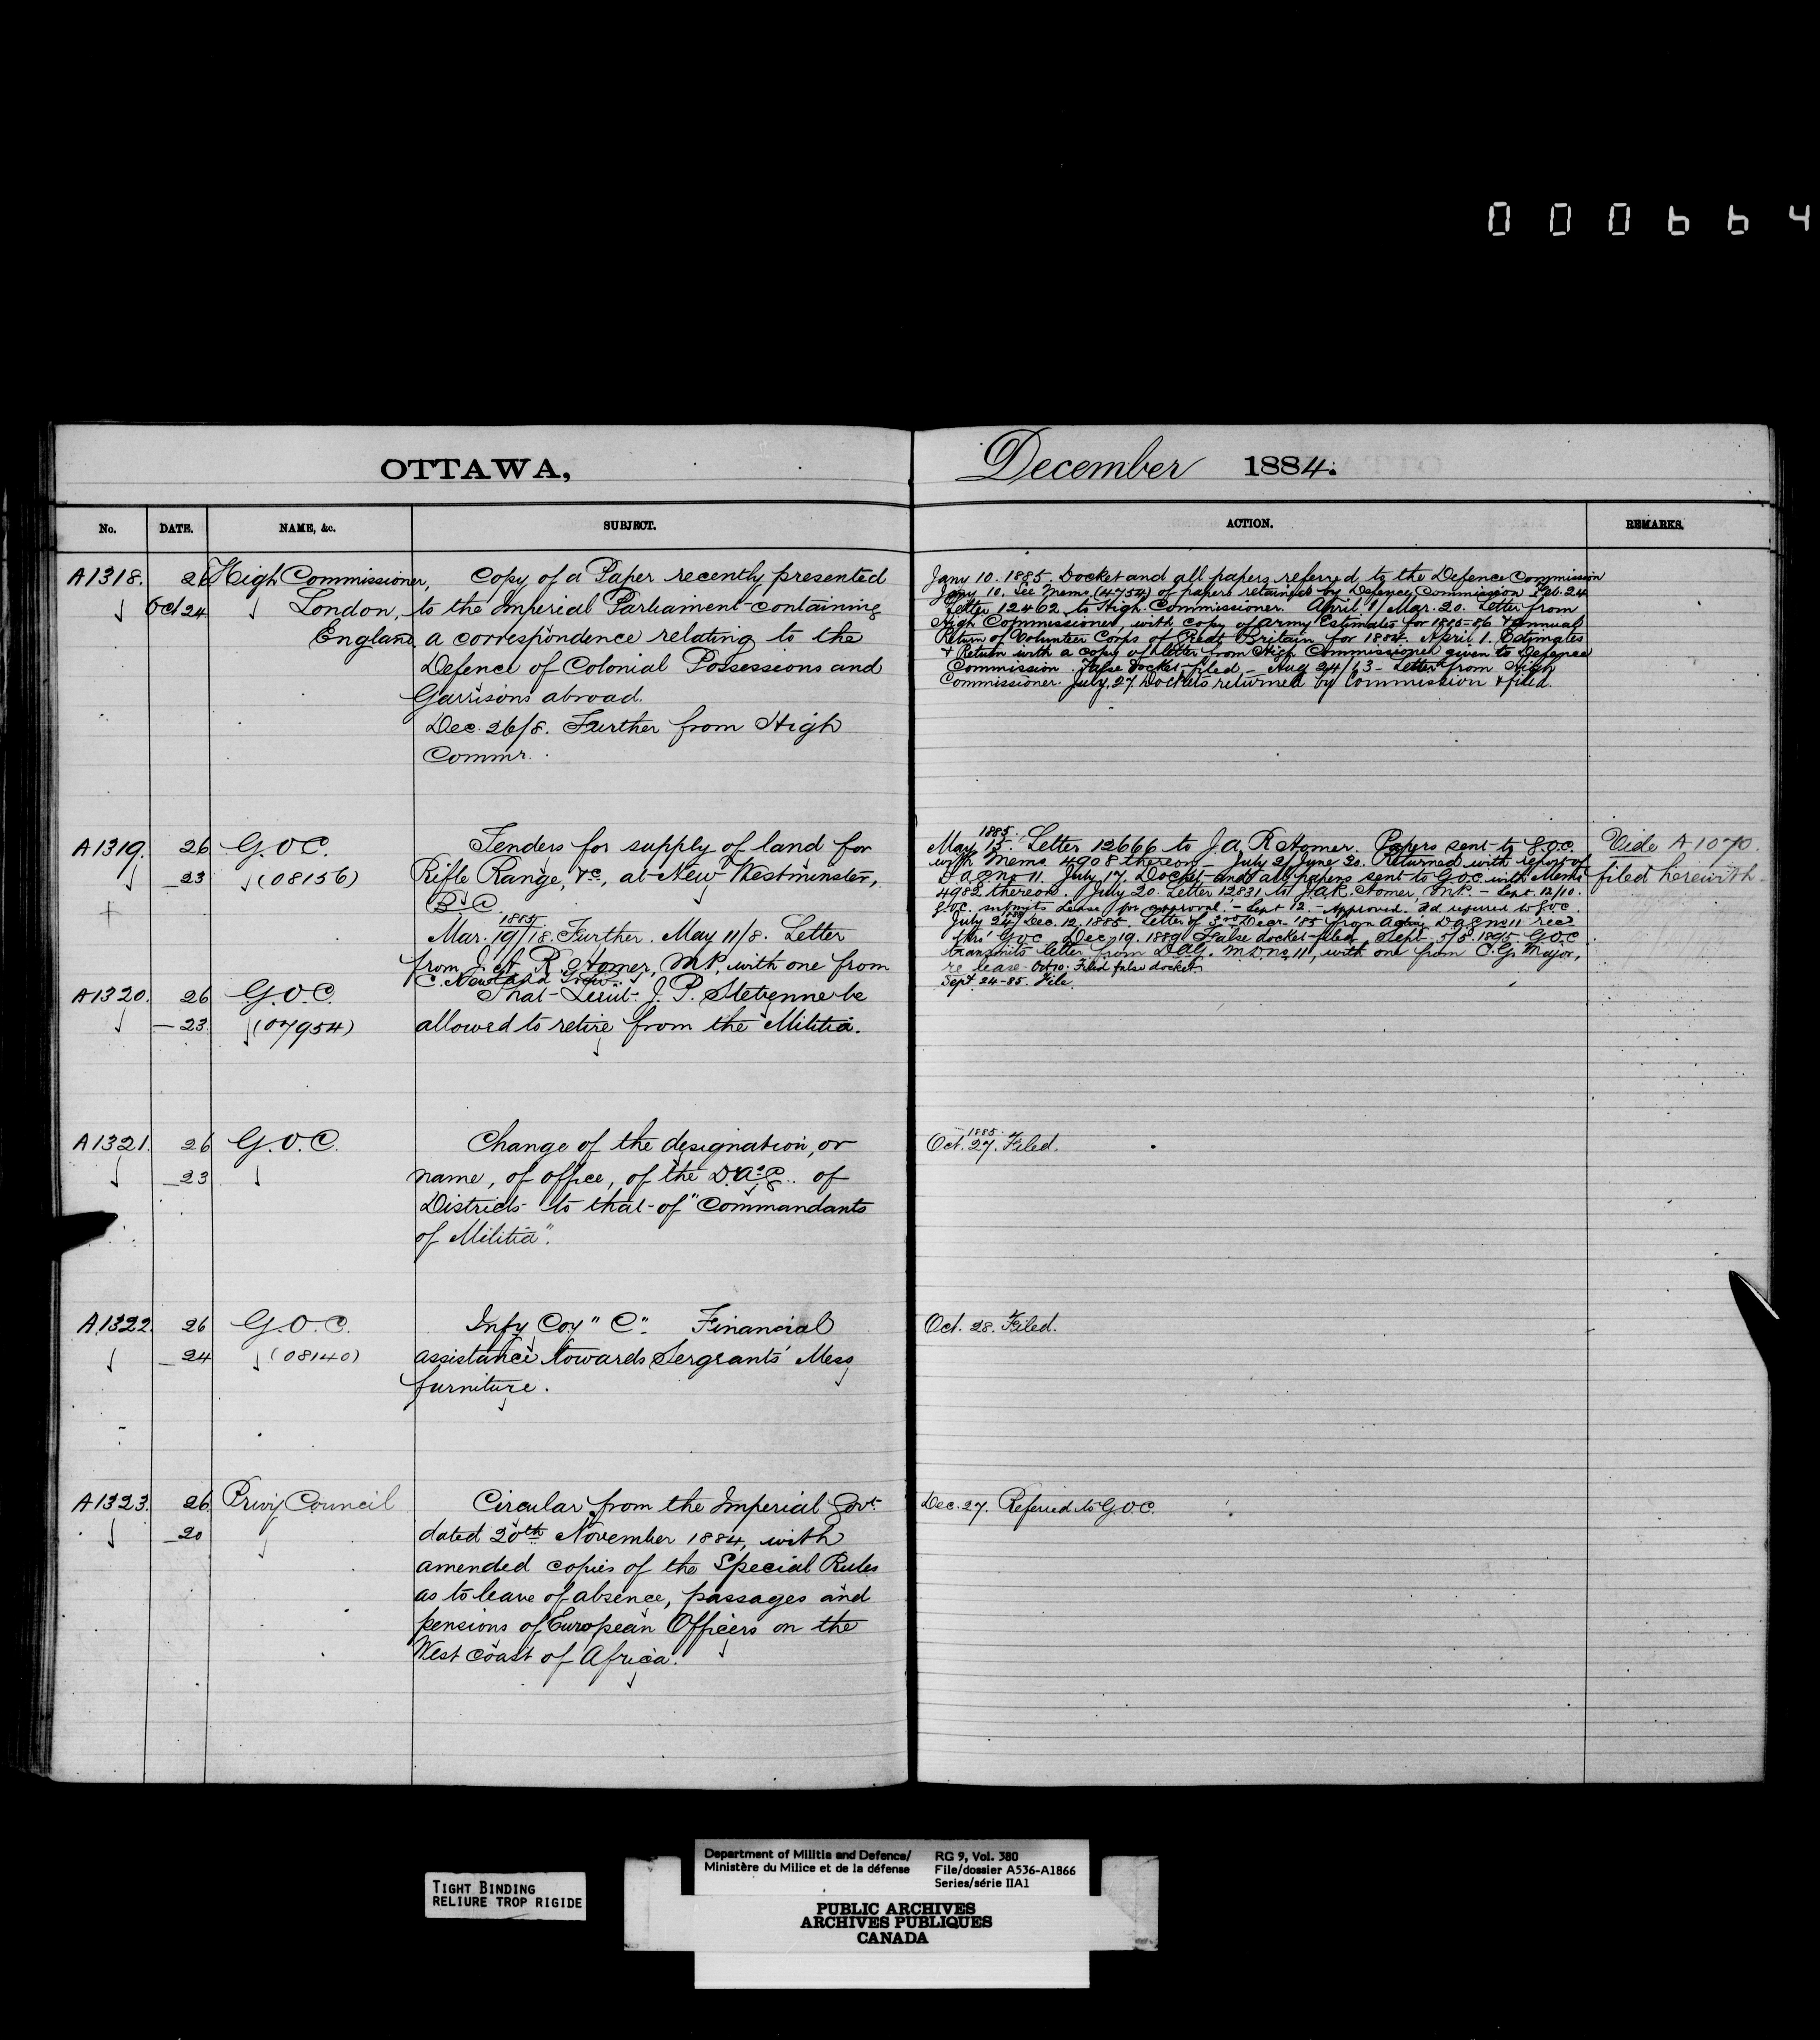 000664
OTTAWA,
December 1884.
No. DATE. NAME, &c. SUBJECT. ACTION. REMARKS.
A1318. 26 High Commissioner, Copy of a Paper recently presented
Oct 24 London, to the Imperial Parliament containing
England a correspondence relating to the
Defence of Colonial Possessions and
Garrisons abroad.
Dec. 26/8. Further from High
Commr.
Jany 10. 1885. Docket and all papers referred to the Defence Commission
Jany 10. See Memo (4754) of papers retained by Defence Commission Feb. 24
Letter 12462 to High Commissioner. April 1/Mar. 20. Letter from
High Commissioner, with copy of Army Estimates for 1885-86 & annual
Return of Volunteer Corps of Great Britain for 1884. April 1. Estimates
& Return with a copy of letter from High Commissioner given to Defence
Commission. False Docket filed - Aug 24/13 - Letter from High
Commissioner. July 27. Dockets returned by Commission & filed.
A1319. 26 G.O.C. Tenders for supply of land for
23 (08156) Rifle Range, &c, at New Westminster,
B.C.
1885
Mar. 19/18. Further. May 11/8. Letter
from J. A. R. Homer, M.P. with one from
1885.
May 15. Letter 12666 to J. A. R Homer. Papers sent to G.O.C.
with Memo. 4908 thereon - July 2/June 20. Returned with report of
D A G No 11. July 17. Docket and all papers sent to G.O.C. with Memo
4982 thereon. July 20. Letter 12831 to J.A.R. Homer, M.P. - Sept. 12/10.
G.O.C. submits Lease for approval. - Sept 12 - Approved. referred to G.O.C.
Dec. 12. 1885. Letter of 3rd Decr. '85 from Acting D A G No 11 recd
thro' G.O.C. Dec. 19. 1889 False docket filed. Sept. 5/5. 1895. G.O.C
transmits letter from D.A.G. M D No 11, with one from C. G. Major,
re lease - Oct 10. Filed false docket
Vide A1070.
filed herewith
A1320. 26 G.O.C. That Lieut. J. P. Stevenne be
23 (07954) allowed to retire from the Militia.
Sept 24-85. File
A1321. 26 G.O.C. Change of the designation, or
23 name, of office, of the D.A.G. of
Districts to that of "Commandants
of Militia".
1885.
Oct. 27. Filed.
A1322 26 G.O.C. Infy Coy "C". Financial
24 (08140) assistance towards Sergeants' Mess
furniture.
Oct. 28. Filed.
A1323. 26 Privy Council Circular from the Imperial Govt.
20 dated 20th November 1884, with
amended copies of the Special Rules
as to leave of absence, passages and
pensions of European Officers on the
West Coast of Africa.
Dec. 27. Referred to G.O.C.
TIGHT BINDING
RELIURE TROP RIGIDE
Department of Militia and Defence/
Ministère du Milice et de la défense
RG 9, Vol. 380
File/dossier A536-A1866
Series/série IIA1
PUBLIC ARCHIVES
ARCHIVES PUBLIQUES
CANADA